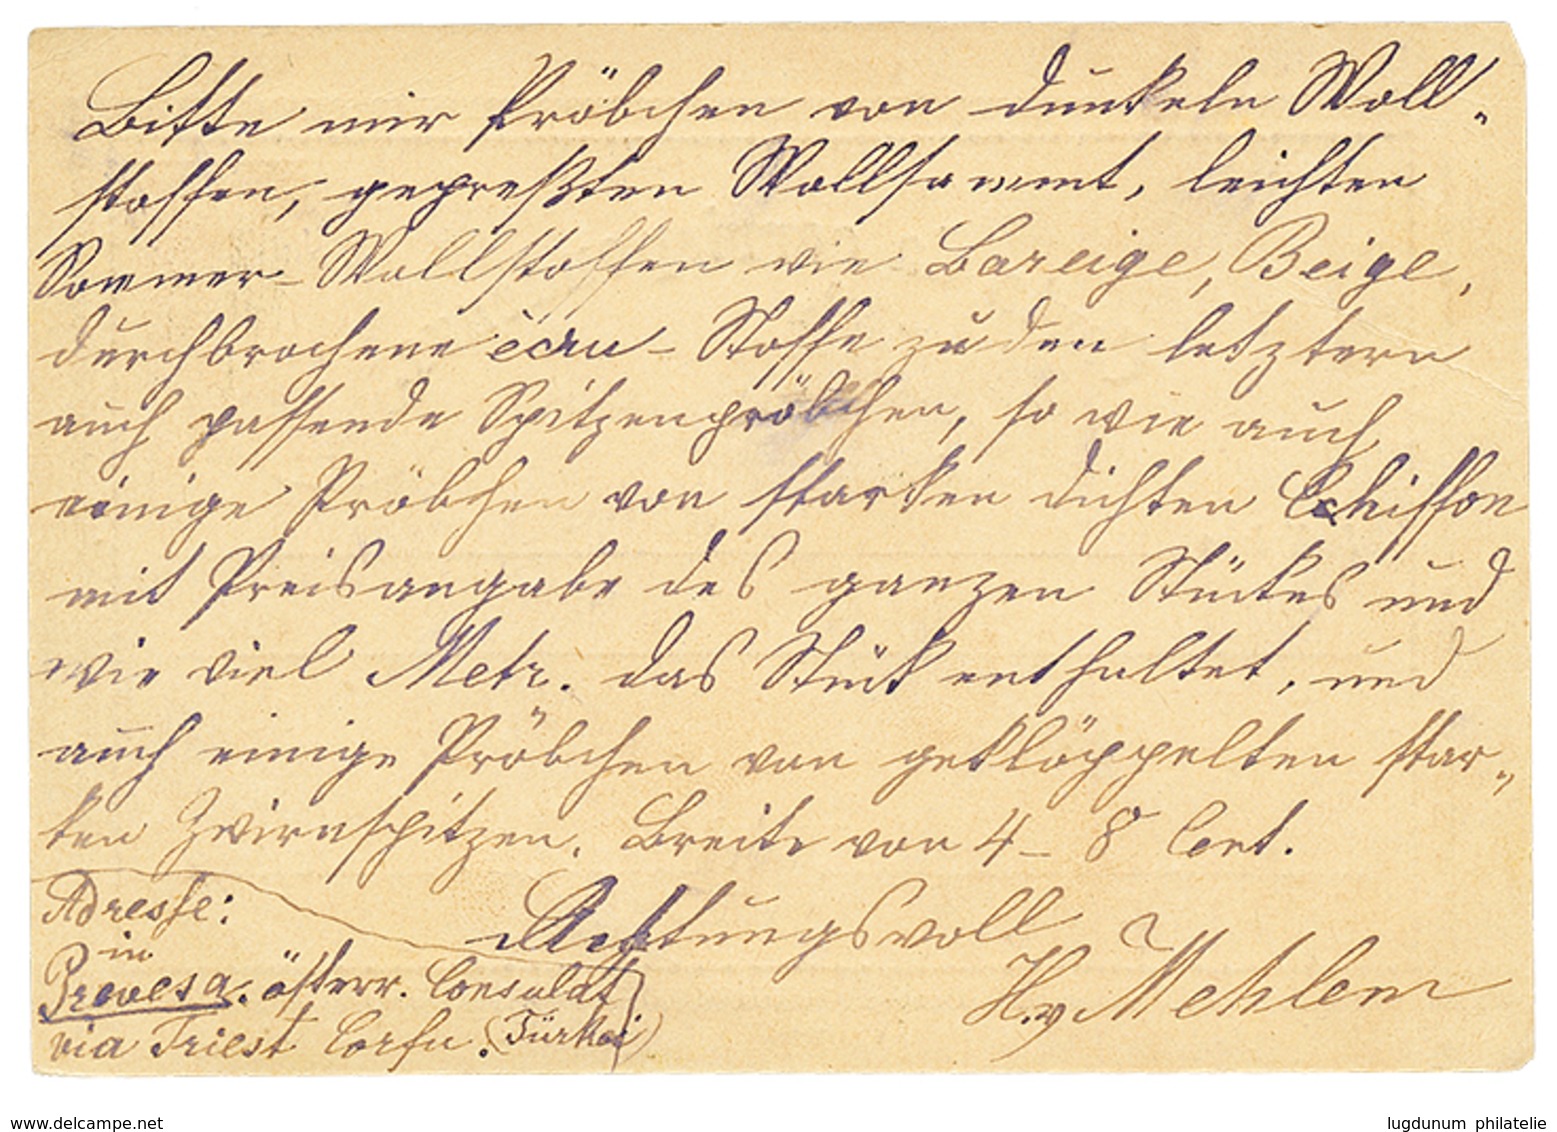 Bitte mir Pröbchen von dunkeln Woll-
stoffen, gepreßten Wollsammt, leichten
Sommer-Wollstoffen wie Bareige, Beige,
durchbrochene écru-Stoffe zu den letztern
auch passende Spitzenpröbchen, so wie auch
einige Pröbchen von starken dichten Chiffon
mit Preisangabe des ganzen Stückes und
wie viel Metr. das Stück enthaltet, und
auch einige Pröbchen von geklöppelten star-
ken Zwirnspitzen, Breite von 4-8 Cent.
Achtungsvoll
H. v Mehlem
Adresse:
in
Prevesa. österr. Consulat
via Triest Corfu. (Türkei)
www.delcampe.net
lugdunum philatelie